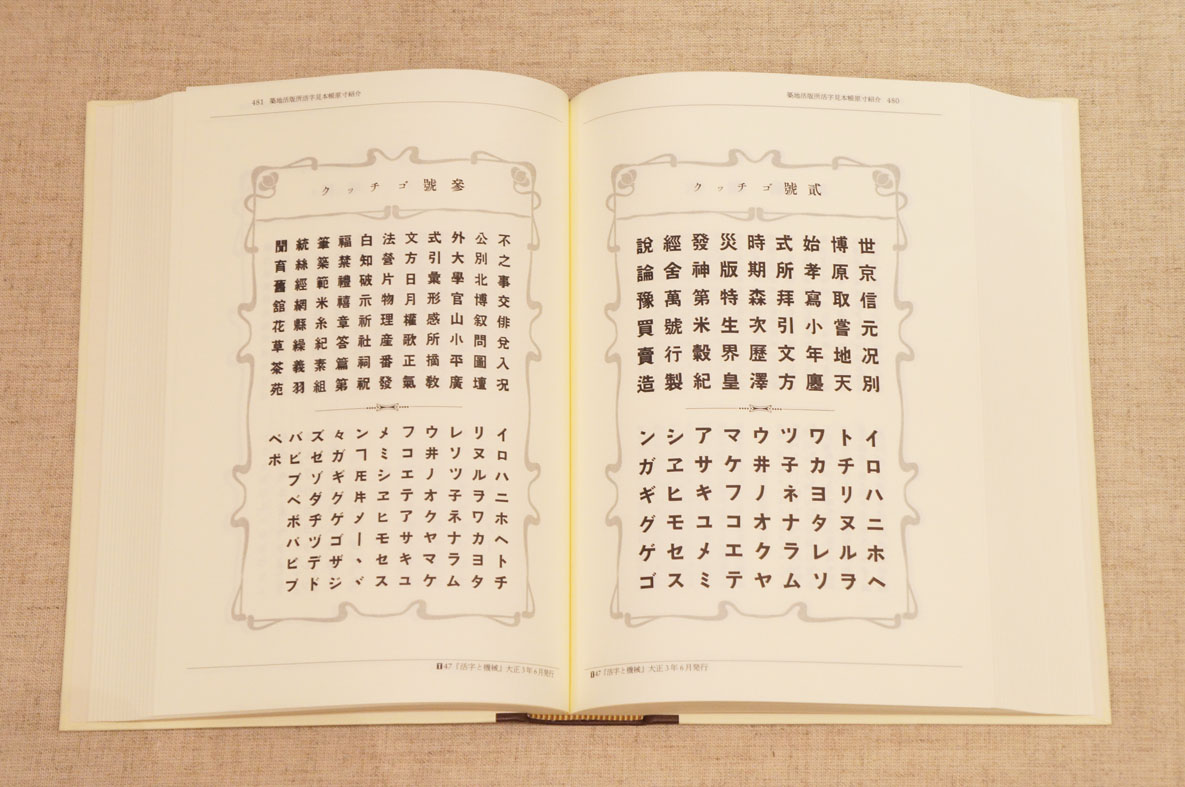 築地活版所活字見本帳原寸紹介 480
貳號ゴチック
世京信元况別
博原取嘗地天
始孝寫小年
式所拜引文方
時期森次歷澤
災版特生界皇
發神第米穀紀
經舍萬號行製
說論豫買賣造
イロハニホヘ
トチリヌルヲ
ワカヨタレソ
ツ子ネナラム
ウ井ノオクヤ
マケフコエテ
アサキユメミ
シヱヒモセス
ンガギグゲゴ
T47『活字と機械』大正3年6月発行
481 築地活版所活字見本帳原寸紹介
參號ゴチック
不之事交俳兌入况
公別北博叙問圖壇
外大學官山小平廣
式引彙形感所摘敎
文方日月權歌正氣
法營片物理産番發
白知破示祈社祠祝
福禁禮禧章答篇第
筆築範米糸紀素組
統絲經網縣繰義羽
聞育舊舘花草荼苑
イロハニホヘトチ
リヌルヲワカヨタ
レソツ子ネナラム
ウ井ノオクヤマケ
フコエテアサキユ
メミシヱヒモセス
ンヿ𪜈〆ー、ヾ
々ガギグゲゴザジ
ズゼゾダヂヅデド
バビブベボパピプ
ペポ
T47『活字と機械』大正3年6月発行